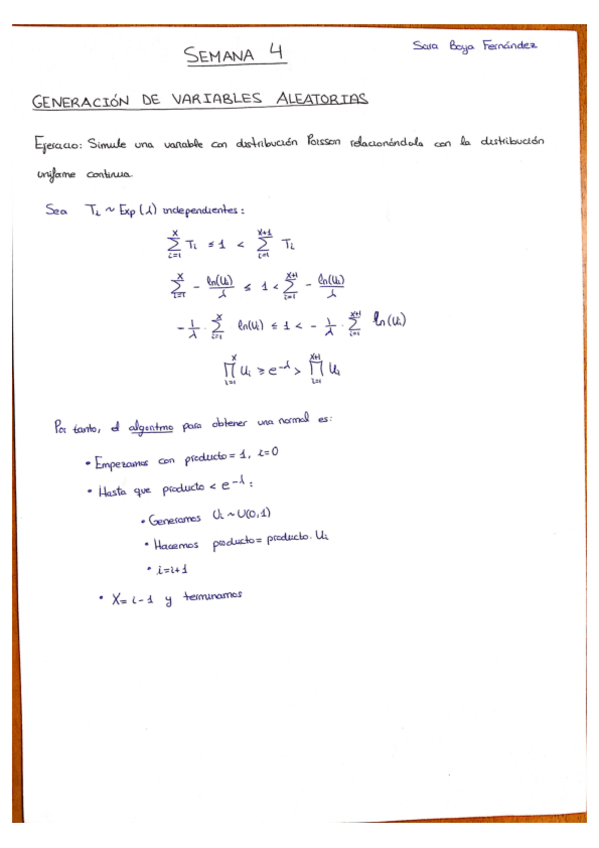 SEMANA 4
Sara Boya Fernández
GENERACIÓN DE VARIABLES ALEATORIAS
Ejercicio: Simule una variable con distribución Poisson relacionándola con la distribución
uniforme continua.
Sea Tᵢ ~ Exp(λ) independientes:
∑_{i=1}^{X} Tᵢ ≤ 1 < ∑_{i=1}^{X+1} Tᵢ
∑_{i=1}^{X} - ln(Uᵢ)/λ ≤ 1 < ∑_{i=1}^{X+1} - ln(Uᵢ)/λ
-1/λ · ∑_{i=1}^{X} ln(Uᵢ) ≤ 1 < -1/λ · ∑_{i=1}^{X+1} ln(Uᵢ)
∏_{i=1}^{X} Uᵢ ≥ e^{-λ} > ∏_{i=1}^{X+1} Uᵢ
Por tanto, el algoritmo para obtener una normal es:
• Empezamos con producto = 1, i=0
• Hasta que producto < e^{-λ}:
• Generamos Uᵢ ~ U(0,1)
• Hacemos producto = producto · Uᵢ
• i=i+1
• X= i-1 y terminamos